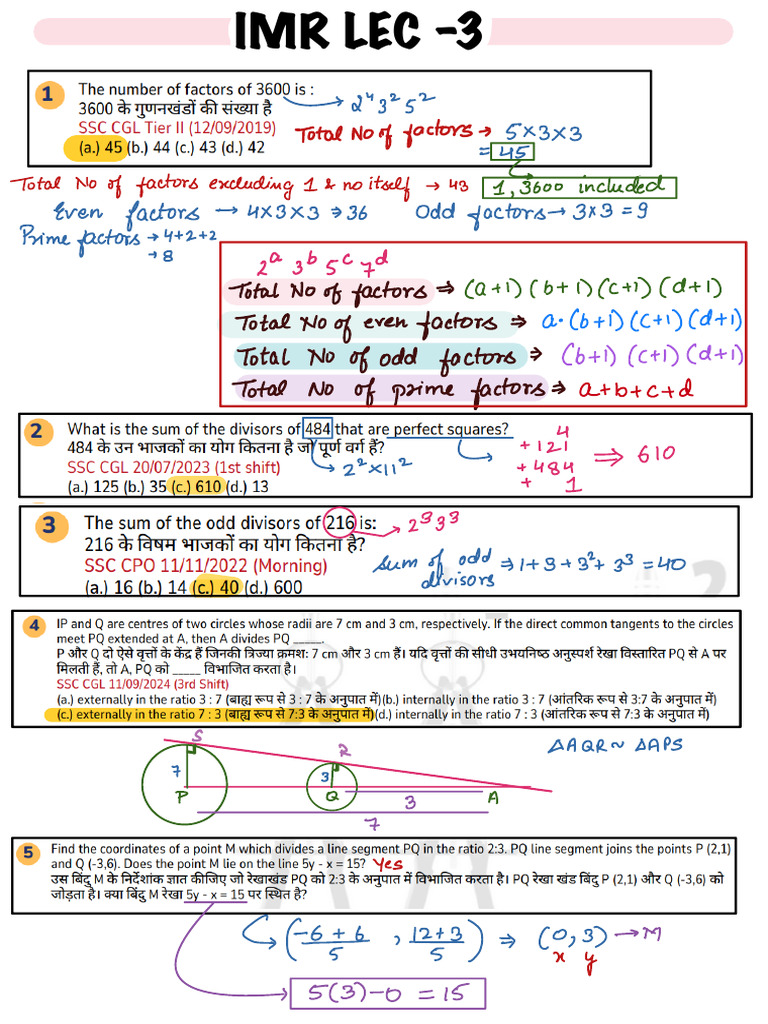 IMR LEC -3
1 The number of factors of 3600 is :
3600 के गुणनखंडों की संख्या है
SSC CGL Tier II (12/09/2019)
(a.) 45 (b.) 44 (c.) 43 (d.) 42
2⁴ 3² 5²
Total No of factors → 5×3×3
= 45
Total No of factors excluding 1 & no itself → 43
1, 3600 included
Even factors → 4×3×3 ⇒ 36 Odd factors → 3×3 = 9
Prime factors → 4+2+2
→ 8
2ᵃ 3ᵇ 5ᶜ 7ᵈ
Total No of factors ⇒ (a+1) (b+1) (c+1) (d+1)
Total No of even factors ⇒ a·(b+1) (c+1) (d+1)
Total No of odd factors ⇒ (b+1) (c+1) (d+1)
Total No of prime factors ⇒ a+b+c+d
2 What is the sum of the divisors of 484 that are perfect squares?
484 के उन भाजकों का योग कितना है जो पूर्ण वर्ग हैं?
SSC CGL 20/07/2023 (1st shift)
(a.) 125 (b.) 35 (c.) 610 (d.) 13
2²×11²
4
+121
+484
+ 1
⇒ 610
3 The sum of the odd divisors of 216 is:
216 के विषम भाजकों का योग कितना है?
SSC CPO 11/11/2022 (Morning)
(a.) 16 (b.) 14 (c.) 40 (d.) 600
2³ 3³
Sum of odd
divisors ⇒ 1+3+3²+3³ = 40
4 IP and Q are centres of two circles whose radii are 7 cm and 3 cm, respectively. If the direct common tangents to the circles
meet PQ extended at A, then A divides PQ _____.
P और Q दो ऐसे वृत्तों के केंद्र हैं जिनकी त्रिज्या क्रमशः 7 cm और 3 cm हैं। यदि वृत्तों की सीधी उभयनिष्ठ अनुस्पर्श रेखा विस्तारित PQ से A पर
मिलती हैं, तो A, PQ को _____ विभाजित करता है।
SSC CGL 11/09/2024 (3rd Shift)
(a.) externally in the ratio 3 : 7 (बाह्य रूप से 3 : 7 के अनुपात में)(b.) internally in the ratio 3 : 7 (आंतरिक रूप से 3:7 के अनुपात में)
(c.) externally in the ratio 7 : 3 (बाह्य रूप से 7:3 के अनुपात में)(d.) internally in the ratio 7 : 3 (आंतरिक रूप से 7:3 के अनुपात में)
S
R
△AQR ~ △APS
7
3
P
Q
A
3
7
5 Find the coordinates of a point M which divides a line segment PQ in the ratio 2:3. PQ line segment joins the points P (2,1)
and Q (-3,6). Does the point M lie on the line 5y - x = 15? Yes
उस बिंदु M के निर्देशांक ज्ञात कीजिए जो रेखाखंड PQ को 2:3 के अनुपात में विभाजित करता है। PQ रेखा खंड बिंदु P (2,1) और Q (-3,6) को
जोड़ता है। क्या बिंदु M रेखा 5y - x = 15 पर स्थित है?
((-6+6)/5 , (12+3)/5) ⇒ (0, 3) → M
x y
5(3)-0 = 15